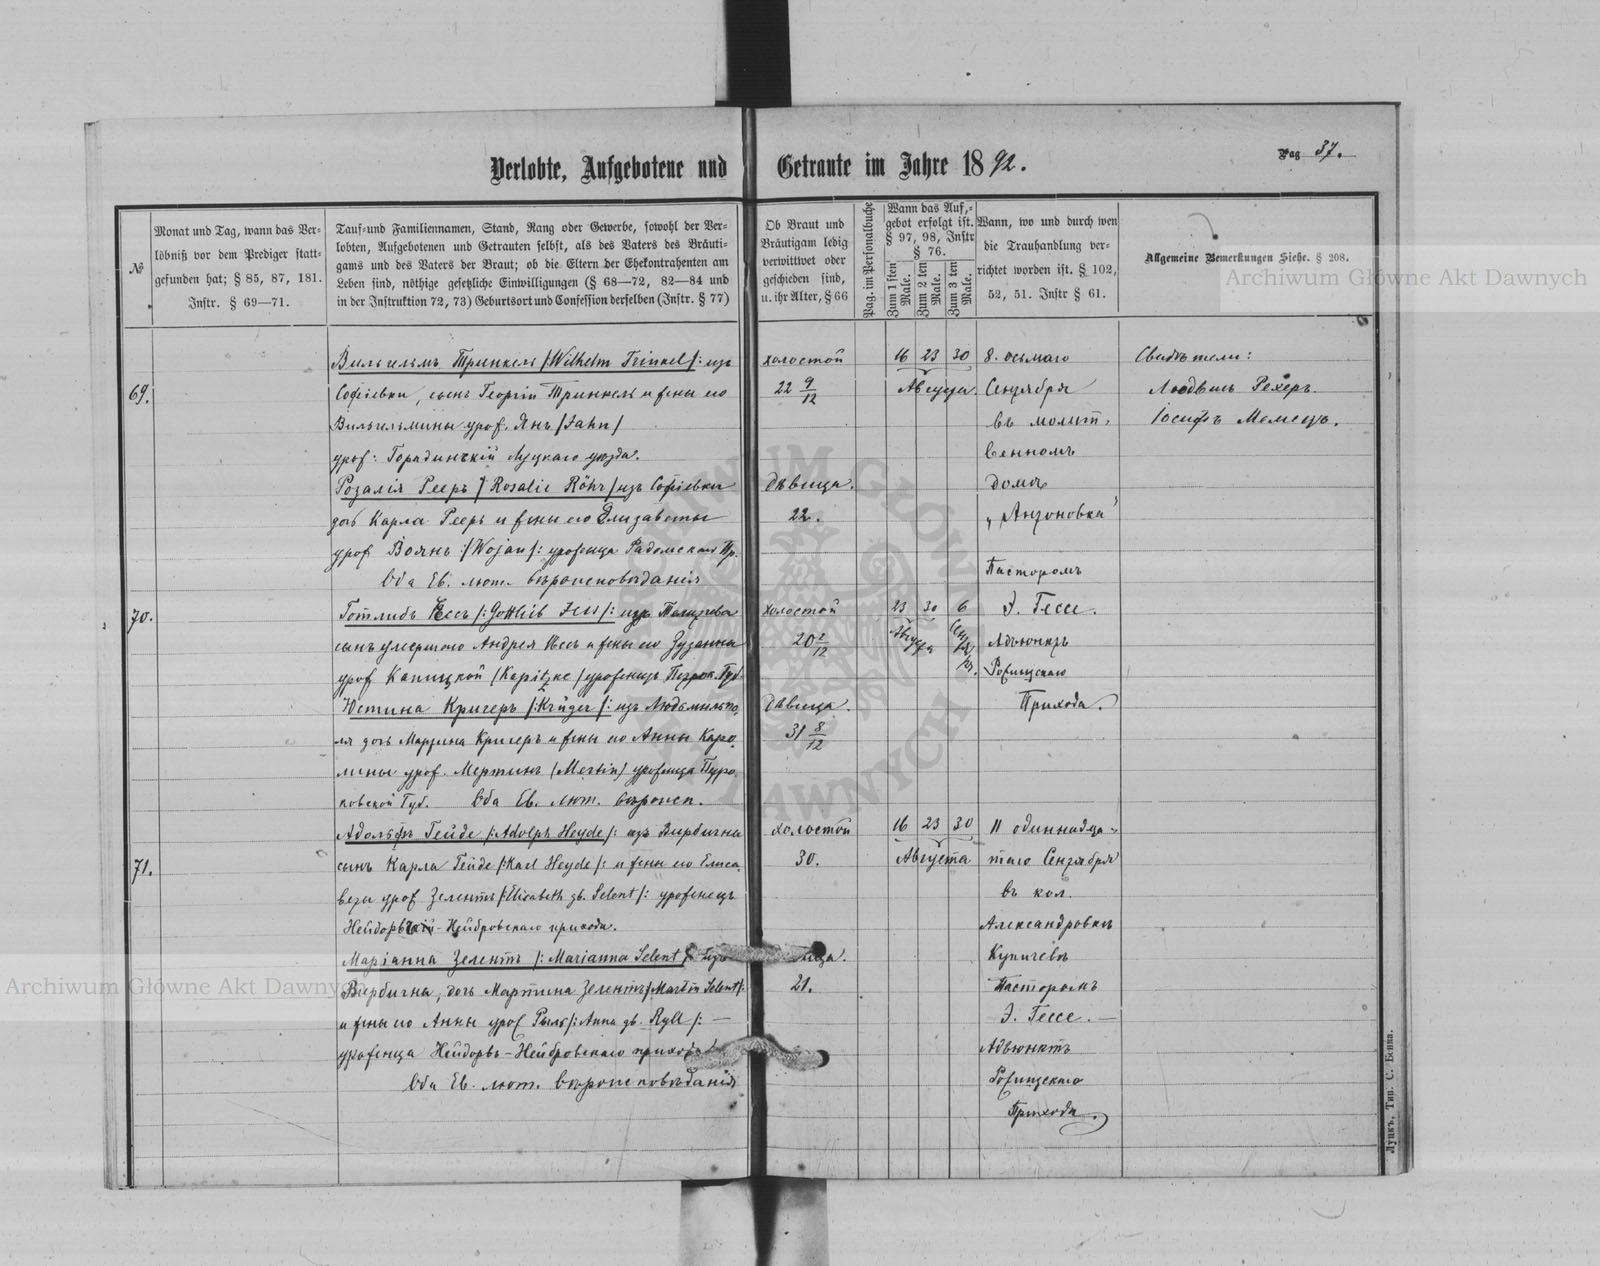 Verlobte, Aufgebotene und Getraute im Jahre 1892.
Pag 37.
№
Monat und Tag, wann das Ver-
löbniß vor dem Prediger statt-
gefunden hat; § 85, 87, 181.
Instr. § 69—71.
Tauf- und Familiennamen, Stand, Rang oder Gewerbe, sowohl der Ver-
lobten, Aufgebotenen und Getrauten selbst, als des Vaters des Bräuti-
gams und des Vaters der Braut; ob die Eltern der Ehekontrahenten am
Leben sind, nöthige gesetzliche Einwilligungen (§ 68—72, 82—84 und
in der Instruktion 72, 73) Geburtsort und Confession derselben (Instr. § 77)
Ob Braut und
Bräutigam ledig
verwittwet oder
geschieden sind,
u. ihr Alter, § 66
Pag. im Personalbuche
Wann das Auf-
gebot erfolgt ist.
§ 97, 98, Instr
§ 76.
Zum 1 sten Male.
Zum 2 ten Male.
Zum 3 ten Male.
Wann, wo und durch wen
die Trauhandlung ver-
richtet worden ist. § 102,
52, 51. Instr § 61.
Allgemeine Bemerkungen Siehe. § 208.
69.
Вильгельмъ Тринкель /:Wilhelm Trinkel/: изъ
Софіевки, сынъ Георгія Тринкеля и жены его
Вильгельмины урож. Янъ /Jahn/
урож: Луцкаго уѣзда.
Розалія Рееръ / Rosalie Röhr / изъ Софіевки
дочь Карла Рееръ и жены его Елизаветы
урож Воянъ :/Wojan/: уроженца Радомской Гу.
Оба Ев. лют. вѣроисповѣданія
холостой
22 9/12
дѣвица.
22.
16 23 30
Августа.
8. осьмаго
Сентября
въ молит-
венномъ
домѣ
„Антоновка"
Пасторомъ
Э. Гессе.
Адъюнктъ
Рожищскаго
Прихода.
Свидѣтели:
Людвигъ Рехеръ.
Іосифъ Мемецъ.
70.
Готлибъ Іесъ /:Gottlieb Jess/: изъ
сынъ умершаго Андрея Іесъ и жены его Зузанны
урож Капицкой /Kapitzke/ уроженецъ Петрок. Губ.
Юстина Кригеръ /:Krüger/: изъ Людмильпо-
ля дочь Мартина Кригеръ и жены его Анны Каро-
лины урож. Мертинъ /Mertin/ уроженца Петро-
ковской Губ. Оба Ев. лют. вѣроисп.
холостой
20 2/12
дѣвица.
31 8/12
23 30 6
Августа
Сентября.
71.
Адольфъ Гейде /:Adolph Heyde/: изъ Вербична
сынъ Карла Гейде /:Karl Heyde/: и жены его Елиса-
веты урож Зелентъ /:Elisabeth gb. Selent/: уроженецъ
Нейдорфскій-Нейбровскаго прихода.
Маріанна Зелентъ /: Marianna Selent / изъ
Вербична, дочь Мартина Зелентъ /:Martin Selent/:
и жены его Анны урож Рылъ /: Anna gb. Ryll /: —
уроженца Нейдорвъ-Нейбровскаго прихода
Оба Ев. лют. вѣроисповѣданія
холостой
30.
21.
16 23 30
Августа
11 одиннадца-
таго Сентября
въ кол.
Александровкѣ
Купичевъ
Пасторомъ
Э. Гессе. —
Адъюнктъ
Рожищскаго
Прихода.
Луцкъ, Тип. С. Бонка.
Archiwum Główne Akt Dawnych
Archiwum Główne Akt Dawnych
Archiwum Główne Akt Dawnych
ARCHIWUM GŁÓWNE AKT DAWNYCH